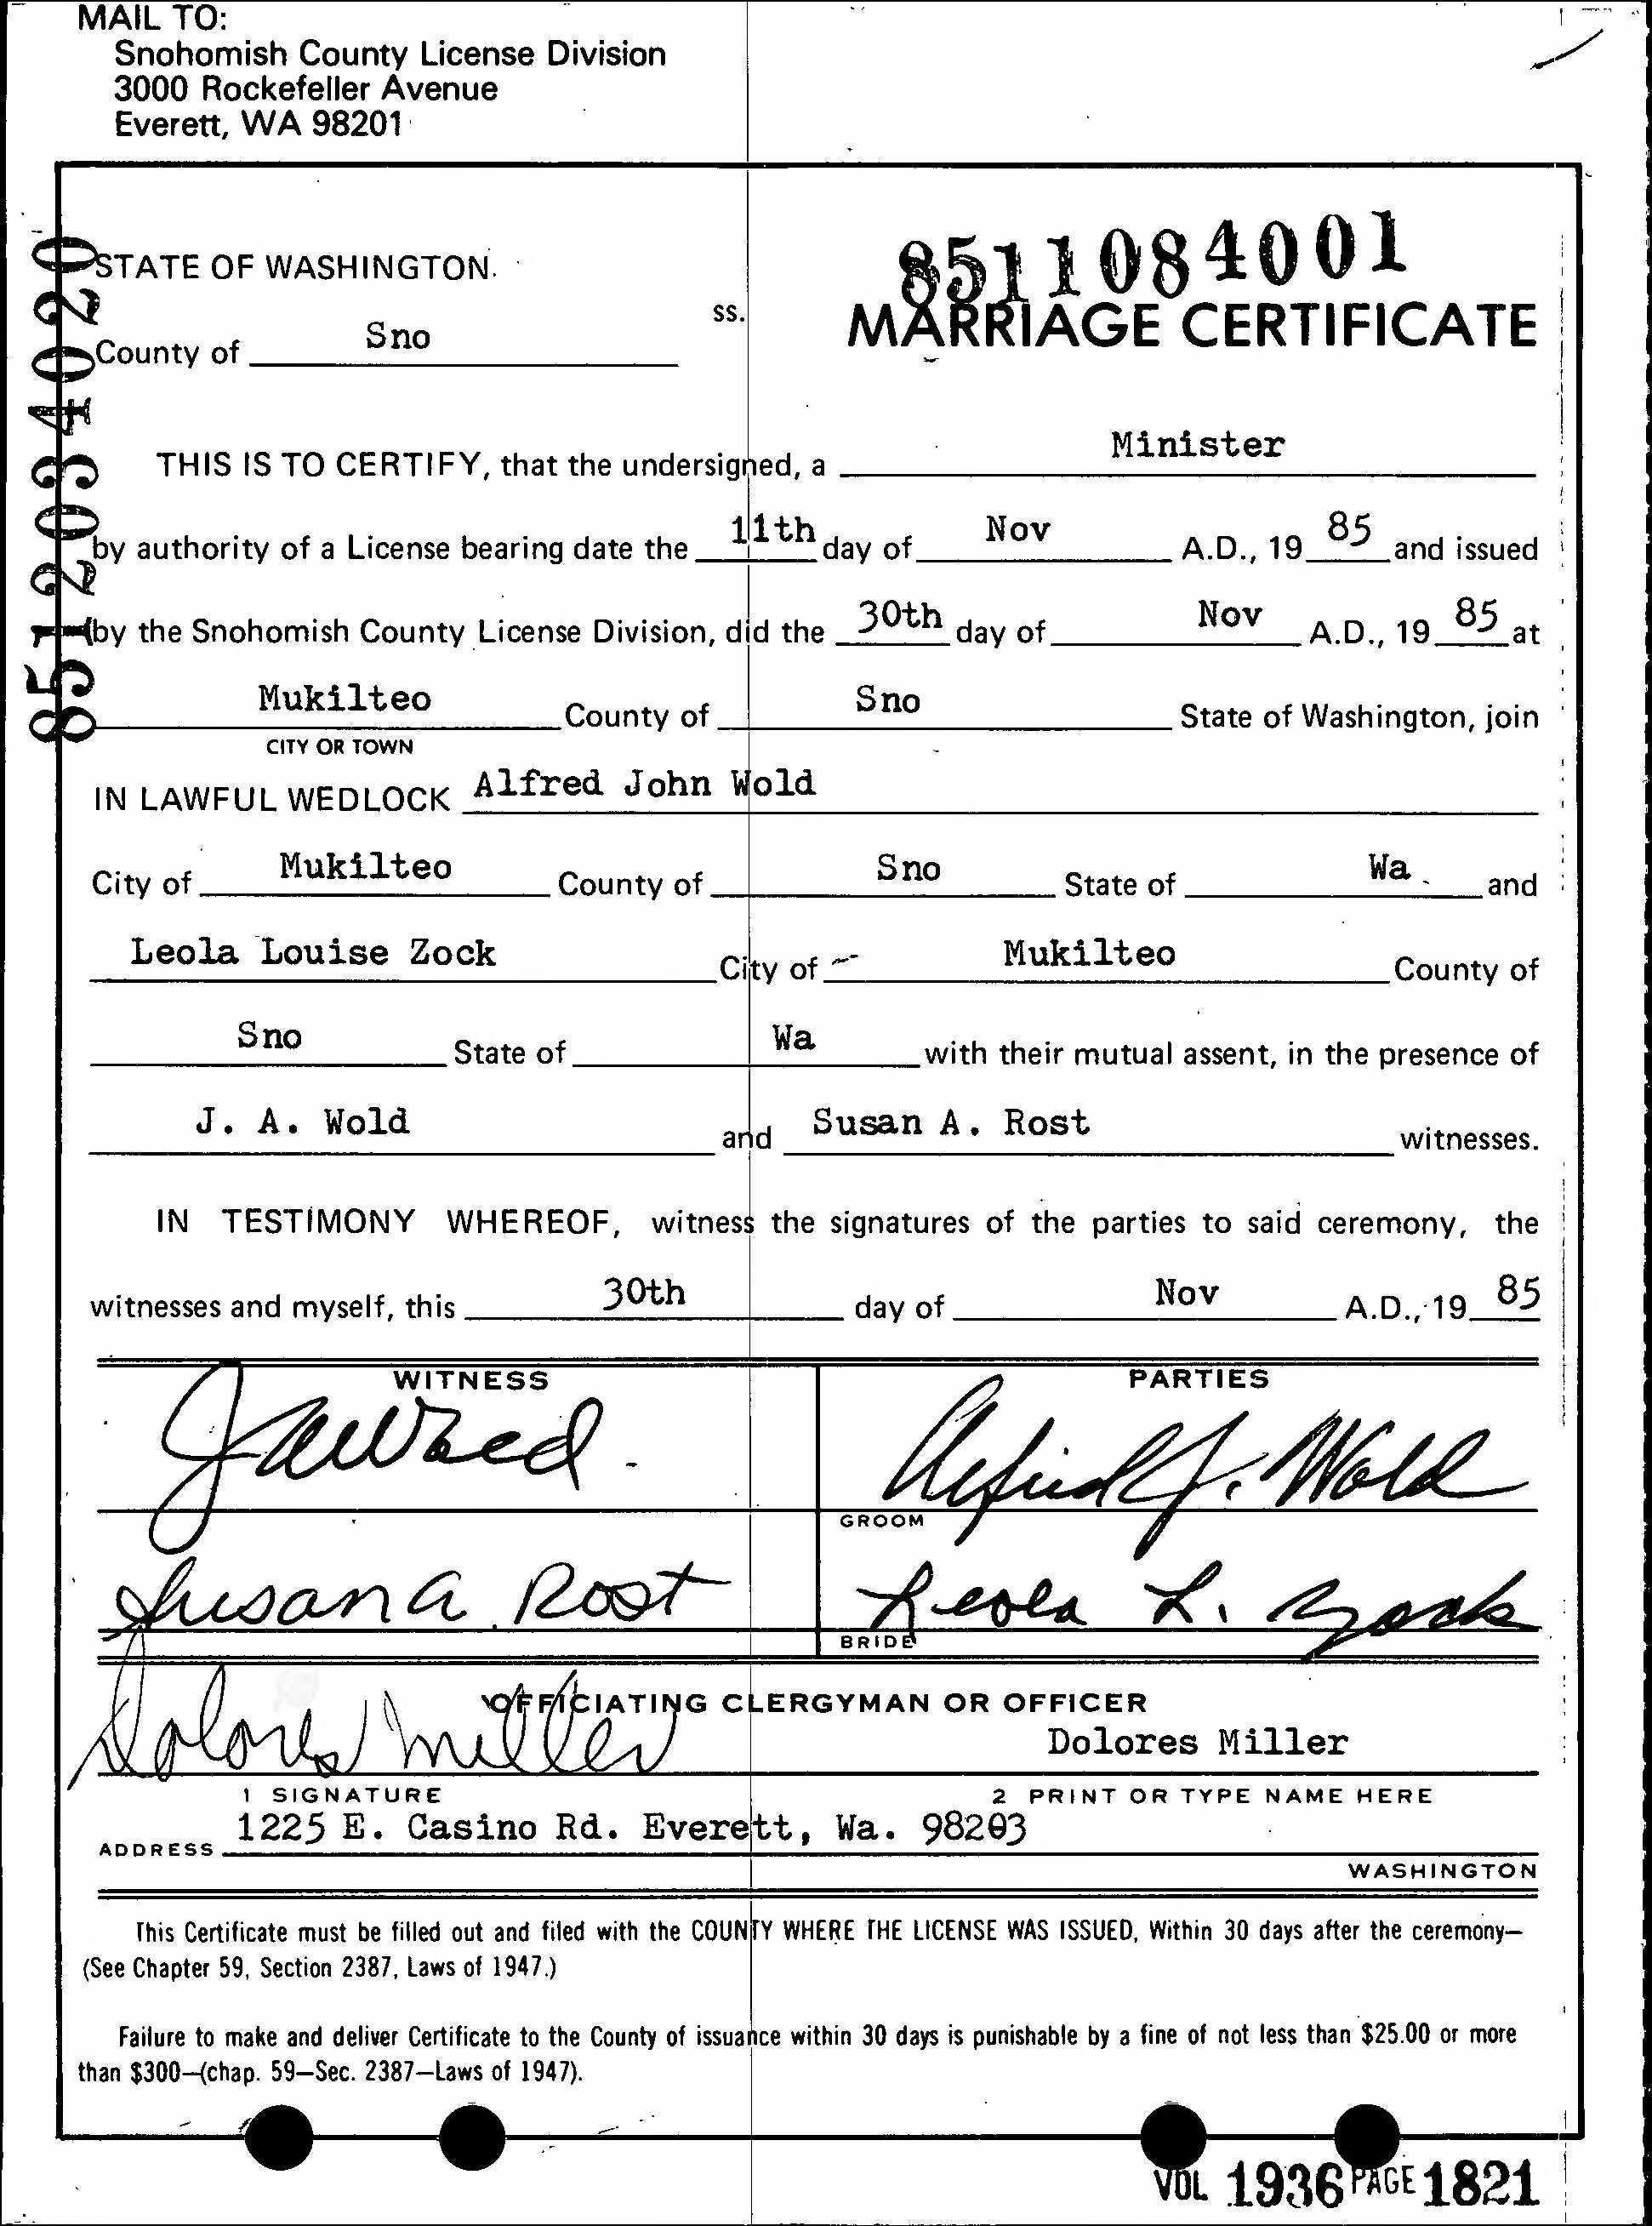 MAIL TO:
Snohomish County License Division
3000 Rockefeller Avenue
Everett, WA 98201
8511084001
STATE OF WASHINGTON.
ss.
MARRIAGE CERTIFICATE
County of Sno
8512034020
THIS IS TO CERTIFY, that the undersigned, a Minister
by authority of a License bearing date the 11th day of Nov A.D., 19 85 and issued
by the Snohomish County License Division, did the 30th day of Nov A.D., 19 85 at
Mukilteo County of Sno State of Washington, join
CITY OR TOWN
IN LAWFUL WEDLOCK Alfred John Wold
City of Mukilteo County of Sno State of Wa and
Leola Louise Zock City of Mukilteo County of
Sno State of Wa with their mutual assent, in the presence of
J. A. Wold and Susan A. Rost witnesses.
IN TESTIMONY WHEREOF, witness the signatures of the parties to said ceremony, the
witnesses and myself, this 30th day of Nov A.D., 19 85
WITNESS PARTIES
Alfred J. Wold
GROOM
Susan A. Rost Leola L. Zock
BRIDE
OFFICIATING CLERGYMAN OR OFFICER
Dolores Miller Dolores Miller
1 SIGNATURE 2 PRINT OR TYPE NAME HERE
ADDRESS 1225 E. Casino Rd. Everett, Wa. 98203
WASHINGTON
This Certificate must be filled out and filed with the COUNTY WHERE THE LICENSE WAS ISSUED, Within 30 days after the ceremony—
(See Chapter 59, Section 2387, Laws of 1947.)
Failure to make and deliver Certificate to the County of issuance within 30 days is punishable by a fine of not less than $25.00 or more
than $300—(chap. 59—Sec. 2387—Laws of 1947).
VOL 1936 PAGE 1821